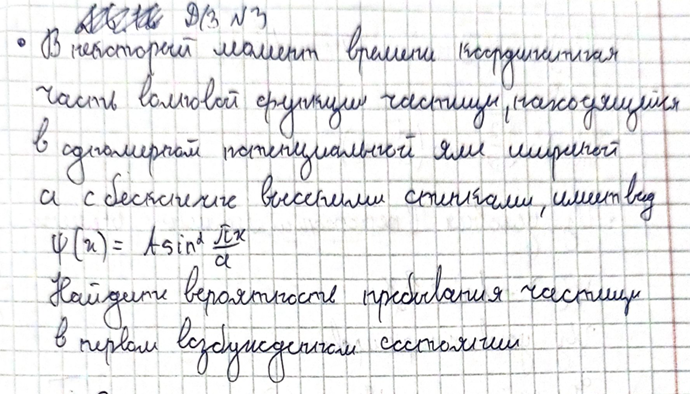 Д/З №3
• В некоторый момент времени координатная
часть волновой функции частицы, находящейся
в одномерной потенциальной яме шириной
a с бесконечно высокими стенками, имеет вид
ψ(x) = A sin² πx/a
Найдите вероятность пребывания частицы
в первом возбужденном состоянии